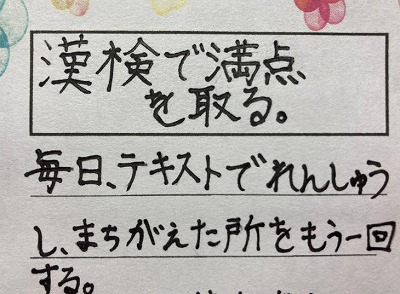 漢検で満点
を取る。
毎日、テキストでれんしゅう
し、まちがえた所をもう一回
する。